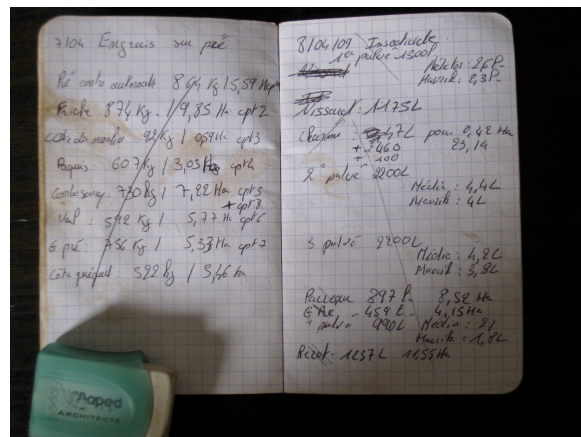 7/04 Engrais sur pré
Pré contre autoroute 864 Kg / 5,59 Ha
Friche 874 Kg / 9,85 Ha cpt 2
92 Kg / 0,59 Ha cpt 3
Paquis 607 Kg / 3,03 Ha cpt 4
730 Kg / 7,22 Ha cpt 5
+ cpt 8
Val : 592 Kg / 5,77 Ha cpt 6
G pré : 756 Kg / 5,33 Ha cpt 7
322 Kg / 3,46 Ha
8/04/09 Insecticide
1er pulvé 1300 l
Mavrik : 2,3
1175 L
4,7 L pour 0,42 Ha
+ 2460 23,14
+ 100
2° pulvé 2200 L
Média : 4,4 L
Mavrik : 4 L
3 pulvé 2200 L
Média : 4,2 L
Mavrik : 3,8 L
897 l. 8,52 Ha
G Pré - 459 l - 4,15 Ha
4 pulvé 990 L Média : 2 l
Mavrik : 1,8 L
1237 L 11,55 Ha
Aoped
ARCHITECTE